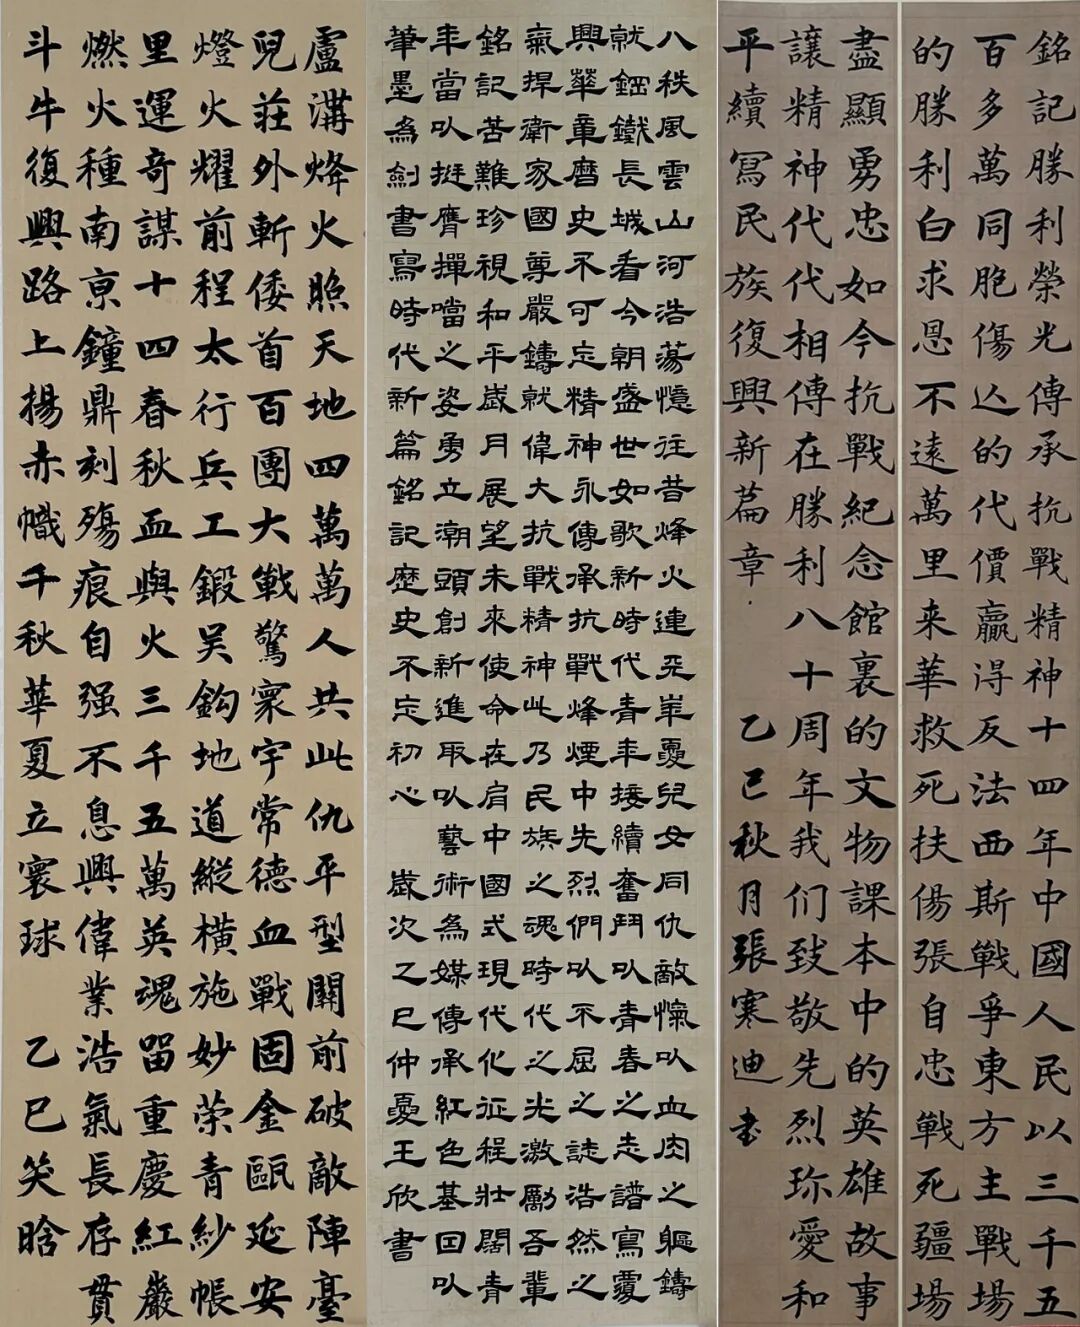 銘記勝利榮光傳承抗戰精神十四年中國人民以三千五
百多萬同胞傷亾的代價贏得反法西斯戰爭東方主戰場
的勝利白求恩不遠萬里来華救死扶傷張自忠戰死疆場
盡顯勇忠如今抗戰紀念館裏的文物課本中的英雄故事
讓精神代代相傳在勝利八十周年我们致敬先烈珎愛和
平續寫民族復興新篇章
乙巳秋月張寒迪書
八秩風雲山河浩蕩憶往昔烽火連天華夏兒女同仇敵愾以血肉之軀鑄
就鋼鐵長城看今朝盛世如歌新時代青年接續奮鬥以青春之志譜寫復
興華章曆史不可忘精神永傳承抗戰烽煙中先烈們以不屈之誌浩然之
氣捍衛家國尊嚴鑄就偉大抗戰精神此乃民族之魂時代之光激勵吾輩
銘記苦難珍視和平歲月展望未來使命在肩中國式現代化征程壯闊青
年當以挺膺擔當之姿勇立潮頭創新進取以藝術為媒傳承紅色基因以
筆墨為劍書寫時代新篇銘記歷史不忘初心
歲次乙巳仲夏王欣書
盧溝烽火照天地四萬萬人共此仇平型關前破敵陣臺
兒莊外斬倭首百團大戰驚寰宇常德血戰固金甌延安
燈火耀前程太行兵工鍛吴鈎地道縱橫施妙荣青紗帳
里運奇謀十四春秋血與火三千五萬英魂留重慶紅巖
燃火種南京鐘鼎刻殤痕自强不息興偉業浩氣長存貫
斗牛復興路上揚赤幟千秋華夏立寰球
乙巳笑晗